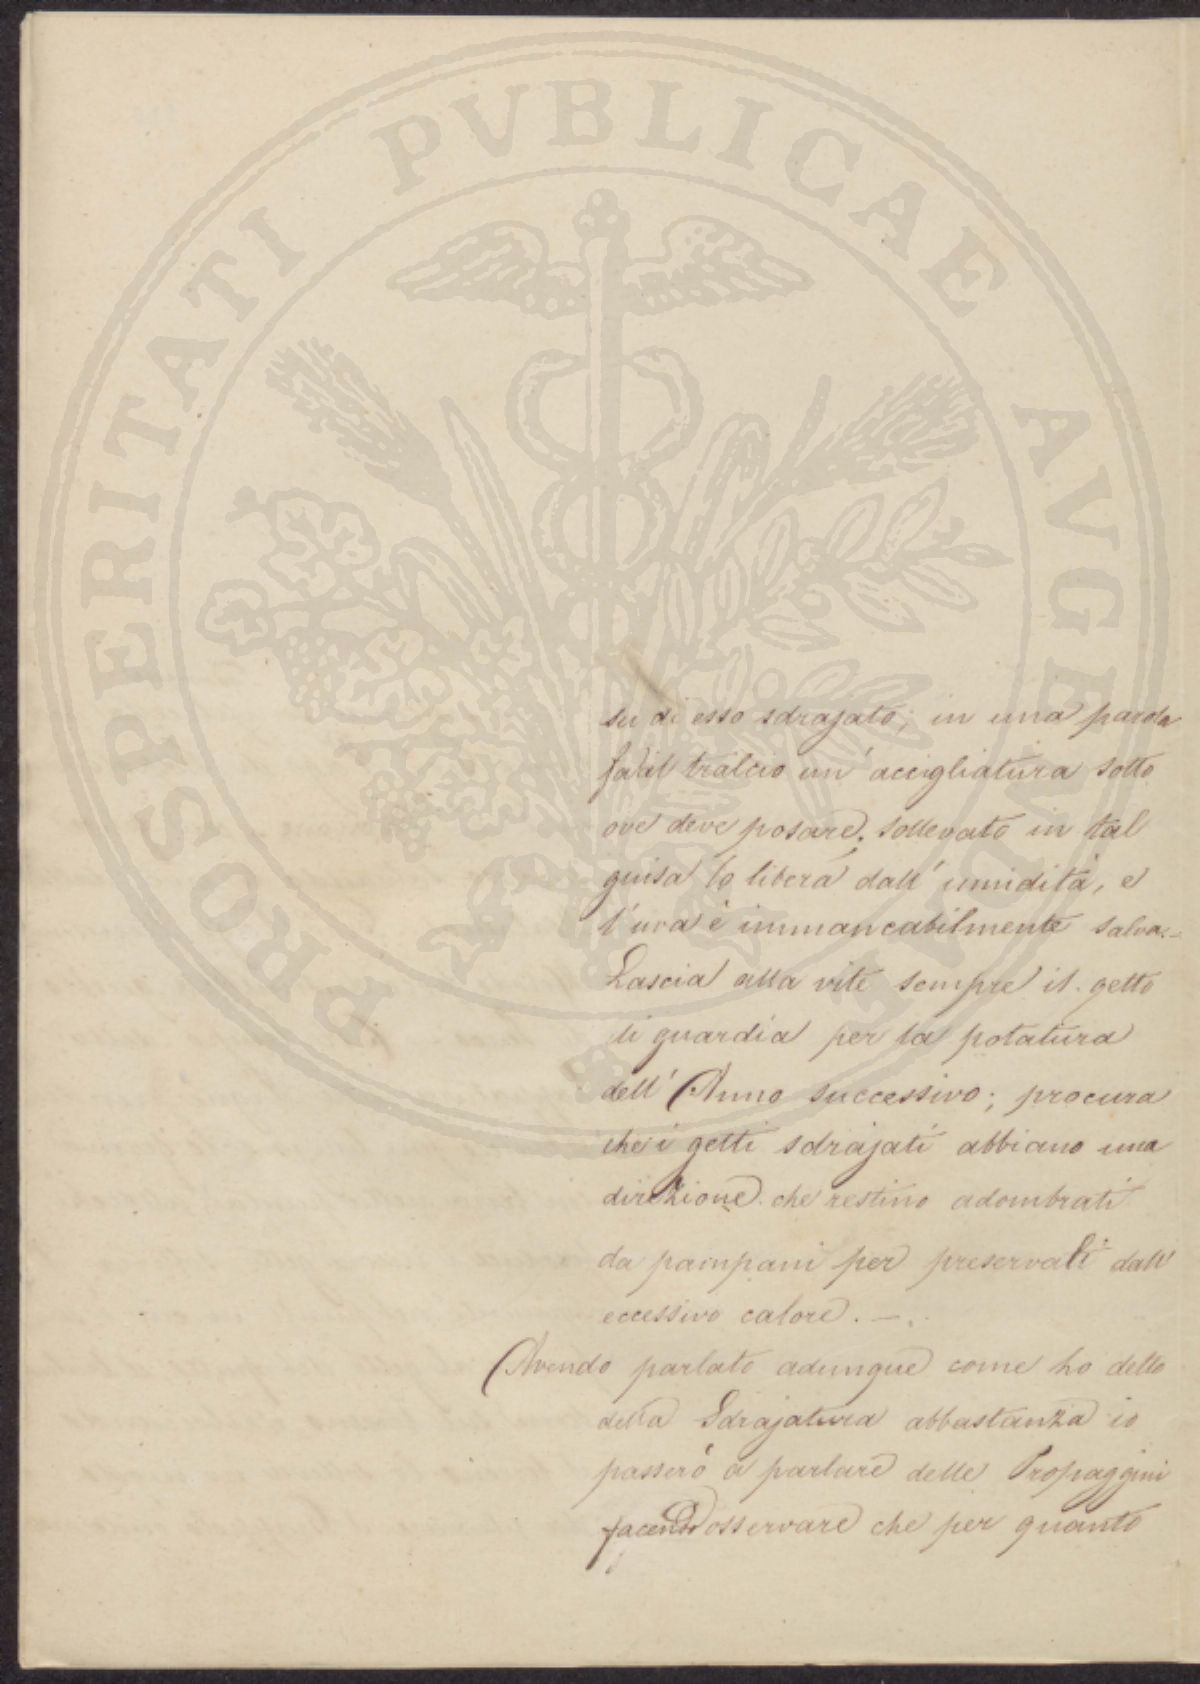 PROSPERITATI PVBLICAE AVGENDAE
su di esso sdrajato; in una parola
fa al tralcio un' accigliatura sotto
ove deve posare. sollevato in tal
guisa lo libera dall' umidità, e
l'uva è immancabilmente salva.-
Lascia alla vite sempre il getto
di guardia per la potatura
dell' Anno successivo; procura
che i getti sdrajati abbiano una
direzione che restino adombrati
da pampani per preservali dall'
eccessivo calore. -.
Avendo parlato adunque come ho detto
della Sdrajatura abbastanza io
passerò a parlare delle Propaggini
facendo osservare che per quanto